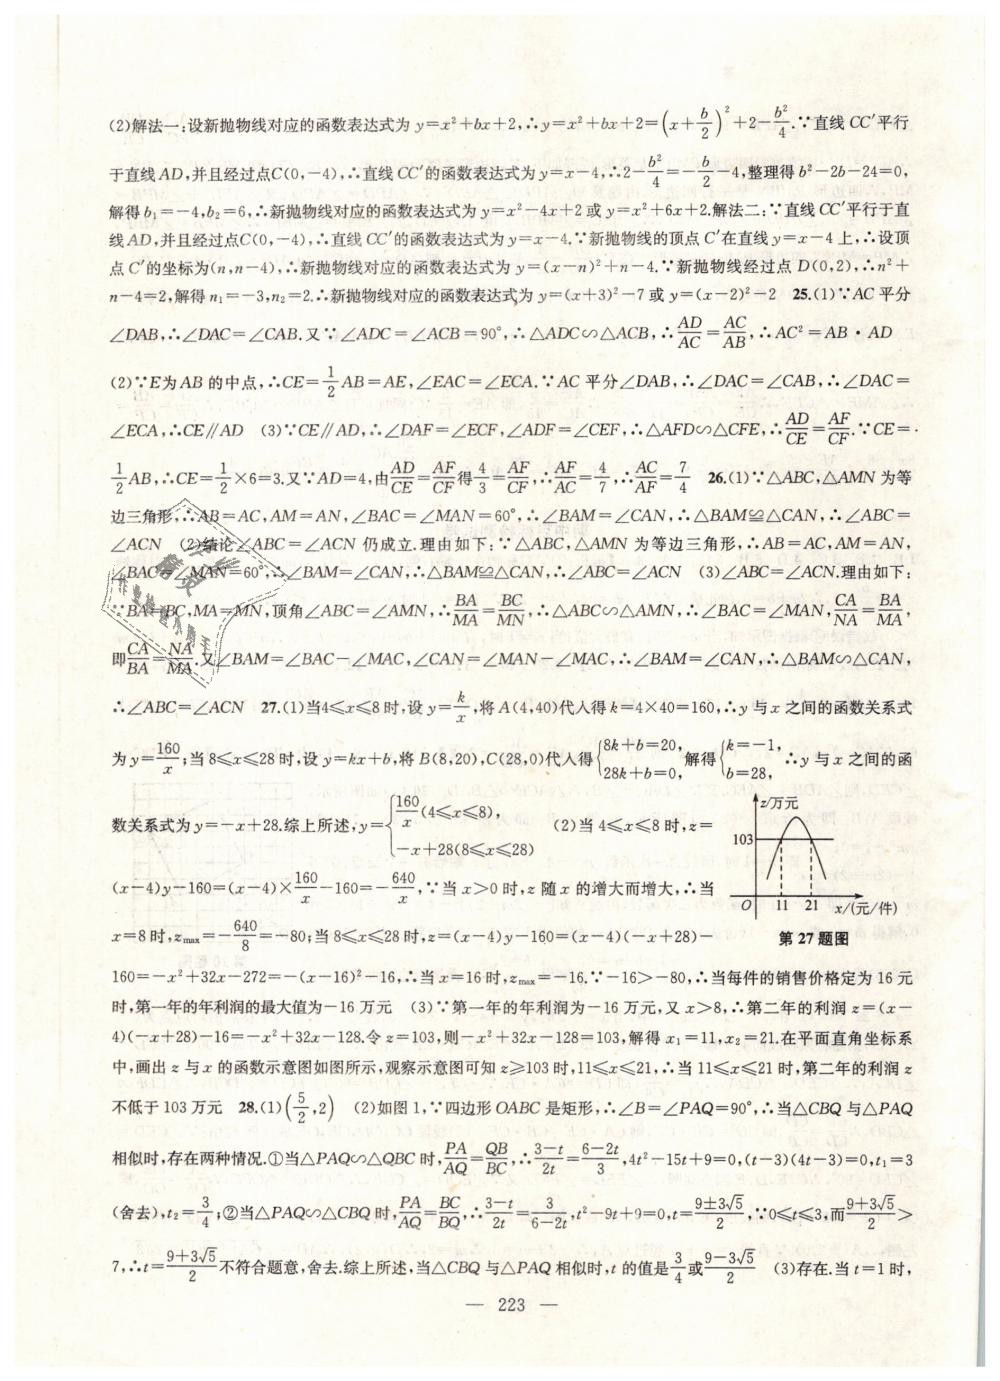 (2)解法一:设新抛物线对应的函数表达式为 y=x²+bx+2,∴y=x²+bx+2=(x+b/2)²+2-b²/4.∵直线 CC′平行
于直线 AD,并且经过点C(0,-4),∴直线 CC′的函数表达式为 y=x-4,∴2-b²/4=-b/2-4,整理得 b²-2b-24=0,
解得 b₁=-4,b₂=6,∴新抛物线对应的函数表达式为 y=x²-4x+2 或 y=x²+6x+2.解法二:∵直线 CC′平行于直
线 AD,并且经过点C(0,-4),∴直线 CC′的函数表达式为 y=x-4.∵新抛物线的顶点 C′在直线 y=x-4 上,∴设顶
点 C′的坐标为(n,n-4),∴新抛物线对应的函数表达式为 y=(x-n)²+n-4.∵新抛物线经过点 D(0,2),∴n²+
n-4=2,解得 n₁=-3,n₂=2.∴新抛物线对应的函数表达式为 y=(x+3)²-7 或 y=(x-2)²-2 25.(1)∵AC 平分
∠DAB,∴∠DAC=∠CAB.又∵∠ADC=∠ACB=90°,∴△ADC∽△ACB,∴AD/AC=AC/AB,∴AC²=AB·AD
(2)∵E为 AB 的中点,∴CE=1/2AB=AE,∠EAC=∠ECA.∵AC 平分∠DAB,∴∠DAC=∠CAB,∴∠DAC=
∠ECA,∴CE∥AD (3)∵CE∥AD,∴∠DAF=∠ECF,∠ADF=∠CEF,∴△AFD∽△CFE,∴AD/CE=AF/CF.∵CE=
1/2AB,∴CE=1/2×6=3.又∵AD=4,由AD/CE=AF/CF得4/3=AF/CF,∴AF/AC=4/7,∴AC/AF=7/4 26.(1)∵△ABC,△AMN 为等
边三角形,∴AB=AC,AM=AN,∠BAC=∠MAN=60°,∴∠BAM=∠CAN,∴△BAM≌△CAN,∴∠ABC=
∠ACN (2)结论∠ABC=∠ACN 仍成立.理由如下:∵△ABC,△AMN 为等边三角形,∴AB=AC,AM=AN,
∠BAC=∠MAN=60°,∴∠BAM=∠CAN,∴△BAM≌△CAN,∴∠ABC=∠ACN (3)∠ABC=∠ACN.理由如下:
∵BA=BC,MA=MN,顶角∠ABC=∠AMN,∴BA/MA=BC/MN,∴△ABC∽△AMN,∴∠BAC=∠MAN,CA/NA=BA/MA,
即CA/BA=NA/MA.又∠BAM=∠BAC-∠MAC,∠CAN=∠MAN-∠MAC,∴∠BAM=∠CAN,∴△BAM∽△CAN,
∴∠ABC=∠ACN 27.(1)当4≤x≤8 时,设 y=k/x,将 A(4,40)代入得 k=4×40=160,∴y 与 x 之间的函数关系式
为 y=160/x;当 8≤x≤28 时,设 y=kx+b,将 B(8,20),C(28,0)代入得{8k+b=20,28k+b=0,解得{k=-1,b=28,∴y 与 x 之间的函
数关系式为 y=-x+28.综上所述,y={160/x(4≤x≤8),-x+28(8≤x≤28) (2)当 4≤x≤8 时,z=
(x-4)y-160=(x-4)×160/x-160=-640/x,∵当 x>0 时,z 随 x 的增大而增大,∴当
x=8 时,zmax=-640/8=-80;当 8≤x≤28 时,z=(x-4)y-160=(x-4)(-x+28)-
z/万元
103
O 11 21 x/(元/件)
第 27 题图
160=-x²+32x-272=-(x-16)²-16,∴当 x=16 时,zmax=-16.∵-16>-80,∴当每件的销售价格定为 16 元
时,第一年的年利润的最大值为-16 万元 (3)∵第一年的年利润为-16 万元,又 x>8,∴第二年的利润 z=(x-
4)(-x+28)-16=-x²+32x-128.令 z=103,则-x²+32x-128=103,解得 x₁=11,x₂=21.在平面直角坐标系
中,画出 z 与 x 的函数示意图如图所示,观察示意图可知 z≥103 时,11≤x≤21,∴当 11≤x≤21 时,第二年的利润 z
不低于 103 万元 28.(1)(5/2,2) (2)如图 1,∵四边形 OABC 是矩形,∴∠B=∠PAQ=90°,∴当△CBQ 与△PAQ
相似时,存在两种情况.①当△PAQ∽△QBC 时,PA/AQ=QB/BC,∴3-t/2t=6-2t/3,4t²-15t+9=0,(t-3)(4t-3)=0,t₁=3
(舍去),t₂=3/4;②当△PAQ∽△CBQ 时,PA/AQ=BC/BQ,∴3-t/2t=3/6-2t,t²-9t+9=0,t=9±3√5/2,∵0≤t≤3,而9+3√5/2>
7,∴t=9+3√5/2不符合题意,舍去.综上所述,当△CBQ 与△PAQ 相似时,t 的值是3/4或9-3√5/2 (3)存在.当 t=1 时,
— 223 —